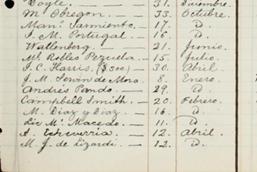 Coyle. — 31. Diciembre.
Mª Obregon. — 33. Octubre.
Manl. Sarmiento. — 17. D.
J. M. Portugal. — 16. D.
Wallenberg. — 21. Junio.
M. Robles Pezuela. — 15. Julio.
J. C. Harris. ($300) — 30. Abril
J. M. Terwin de Mora. 8. Enero.
Andrés Pando. — 29. D.
Campbell Smith. — 20. Febrero.
M. Diaz y Diaz. — 16. D.
Liv Mª Macedo. — 11. D.
A. Echeverria. — 12. Abril.
M. J. de Lizardi. — 12. D.